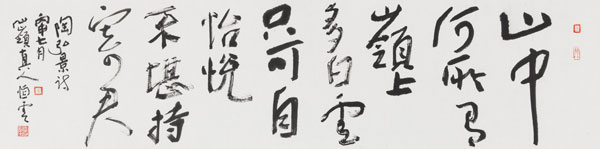 山中
何所有
嶺上
多白雲
只可自
怡悅
不堪持
寄君
陶弘景詩
七月
嶺真人